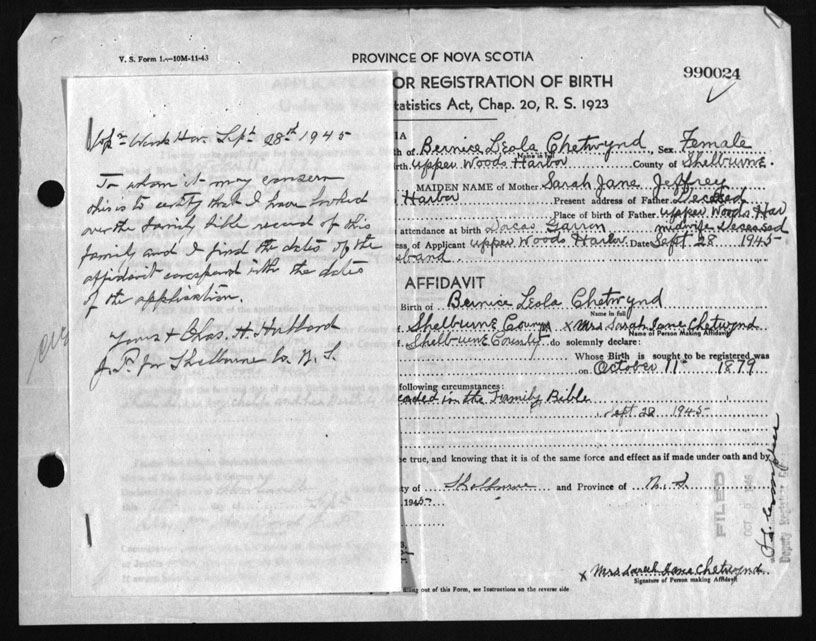 V. S. Form 1.—10M-11-43
PROVINCE OF NOVA SCOTIA
990024
OR REGISTRATION OF BIRTH
tatistics Act, Chap. 20, R. S. 1923
Woods Har. Sept 28th 1945
To whom it may concern
this is to certify that I have looked
over the family bible record of this
family and I find the dates of the
affidavit correspond with the dates
of the application.
Yours Chas. H. Hubbard
J. P. for Shelburne Co. N. S.
th of Bernice Leola Chetwynd, Sex Female
Name in full
irth upper Woods Harbor County of Shelburne.
MAIDEN NAME of Mother Sarah Jane Jeffrey
Harbor Present address of Father
Place of birth of Father upper Woods Har
attendance at birth Dorcas midwife deceased
ess of Applicant upper Woods Harbor Date Sept. 28 1945
sband.
AFFIDAVIT
Birth of Bernice Leola Chetwynd
Name in full
Shelburne County x Mrs Sarah Jane Chetwynd
Name of Person Making Affidavit
of Shelburne County do solemnly declare:
Whose Birth is sought to be registered was
on October 11 1879
following circumstances:
in the Family Bible
Sept 28 1945
be true, and knowing that it is of the same force and effect as if made under oath and by
ty of Shelburne and Province of N. S
1945
FILED
OCT
Deputy Registrar
x Mrs Sarah Jane Chetwynd
Signature of Person making Affidavit
filling out of this Form, see Instructions on the reverse side